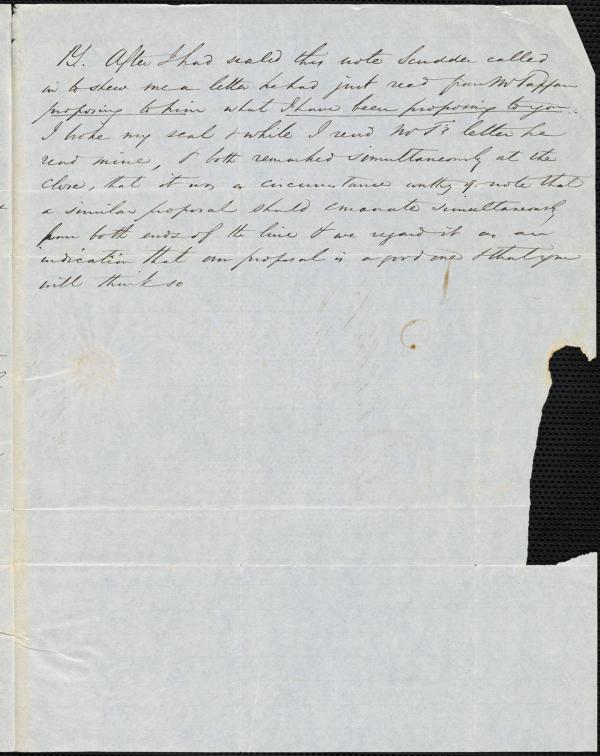 PS. After I had sealed this note Scudder called
in to shew me a letter he had just recd from Mr Tappan
proposing to him what I have been proposing to you.
I broke my seal & while I read Mr T's letter he
read mine, & both remarked simultaneously at the
close, that it was a circumstance worthy of note that
a similar proposal should emanate simultaneously
from both ends of the line & we regard it as an
indication that our proposal is a good one & that you
will think so